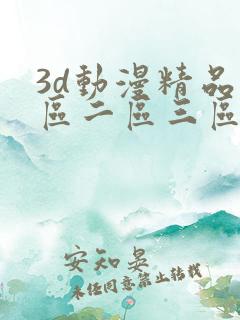 3d動漫精品
區二區三區
安知晏
未经同意禁止转载